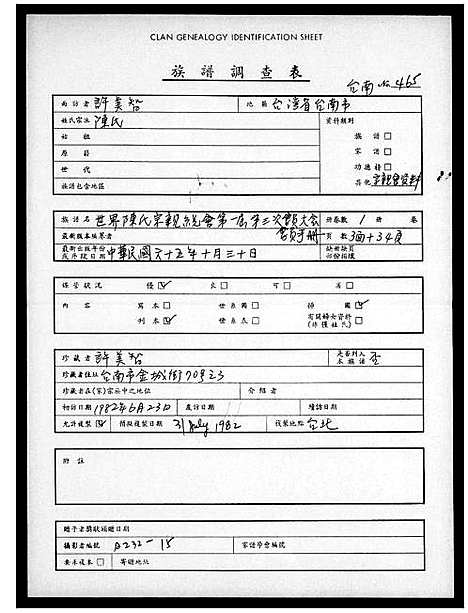 CLAN GENEALOGY IDENTIFICATION SHEET
族譜調查表
台南 No. 465
面訪者 許美智 地區 台灣省台南市
姓氏宗派 陳氏 資料類別
始祖 族譜□
原籍 家譜□
世代 功德榜□
族譜包含地區 其他 宗親會資料
族譜名 世界陳氏宗親總會第一屆第三次大會 冊卷數 1 冊 卷
最新版本編纂者 會員手冊 頁數 3面+34頁
最新出版年份或序跋日期 中華民國六十五年十月三十日 缺冊缺頁部份損壞
保管狀況 優☑ 良□ 可□ 差□
內容 寫本□ 世系圖□ 插圖☑
刊本☑ 世系表□ 有關婦女資料(非僅姓氏)□
珍藏者 許美智 是否列入本族譜 否
珍藏者住址 台南市金城街70号23
珍藏者在(家)宗示中之地位 介紹者
初訪日期 1982年6月23日 复訪日期 續訪日期
允許複製☑ 預擬複製日期 31 July 1982 複製地點 台北
附註
贈予者獎狀頒贈日期
攝影者編號 A232-15 家譜學會編號
要求複本□ 寄贈地址